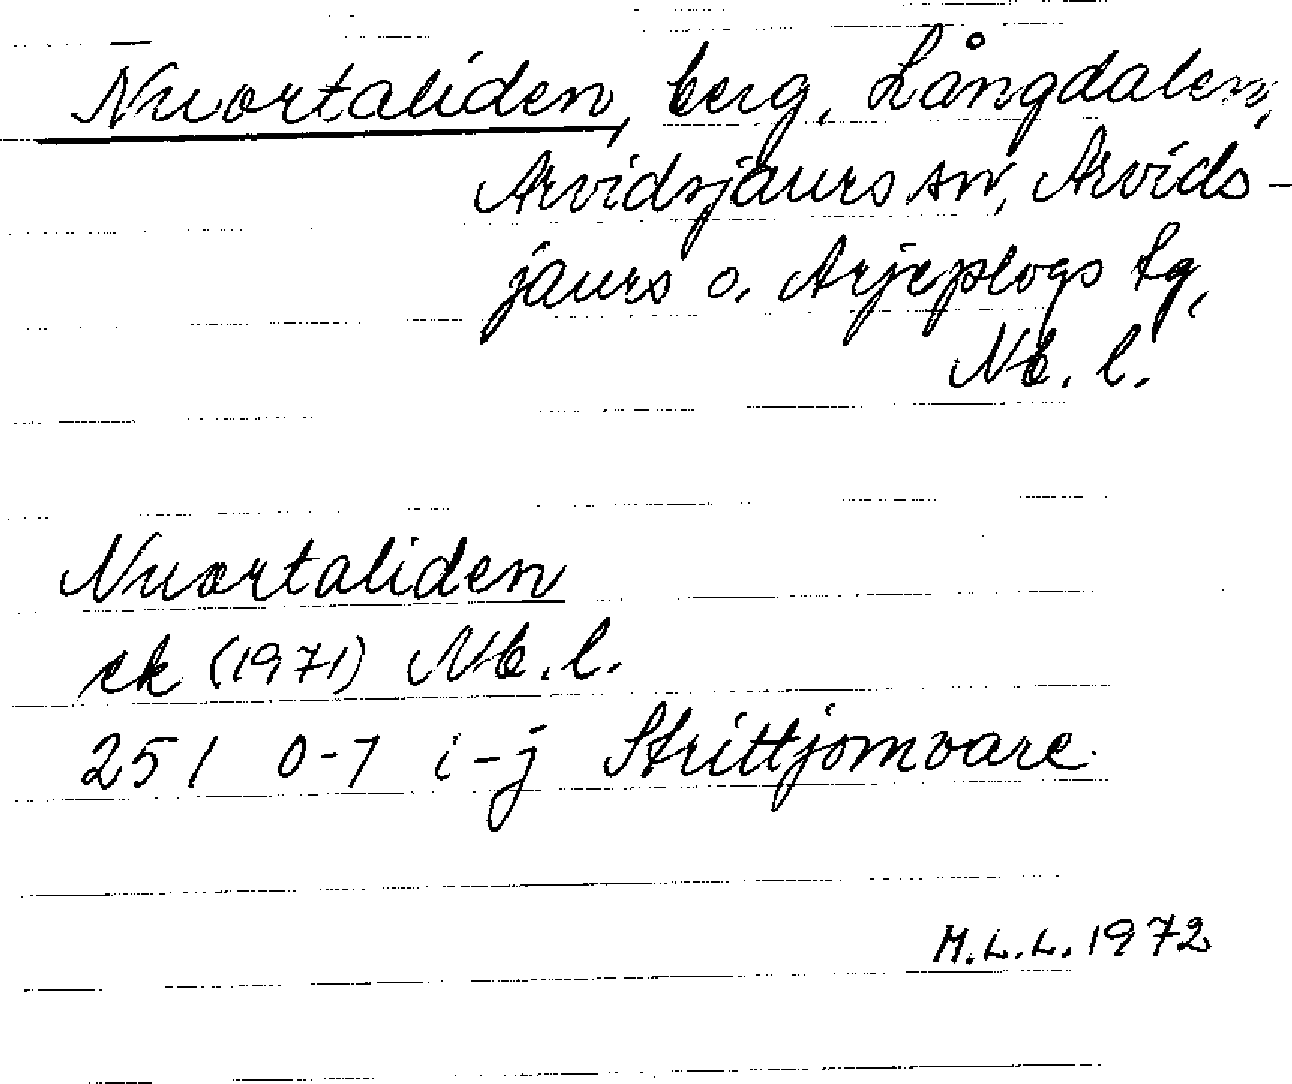 Nuortaliden, berg, Långdalen,
Arvidsjaurs sn, Arvids-
jaurs o. Arjeplogs tg,
Nb. l.
Nuortaliden
ek (1971) Nb. l.
251 0-1 i-j Strittjomvare
M.L.L. 1972